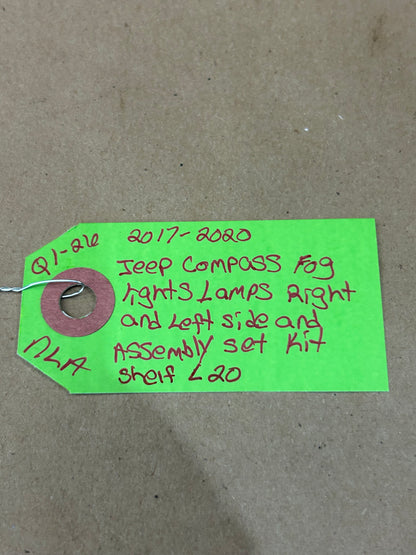 Q1-26
2017-2020
Jeep Compass Fog
lights Lamps Right
and Left side and
Assembly set Kit
shelf L20
NLA